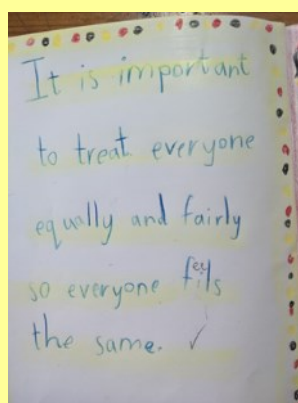 It is important
to treat everyone
equally and fairly
so everyone feels
the same. ✓